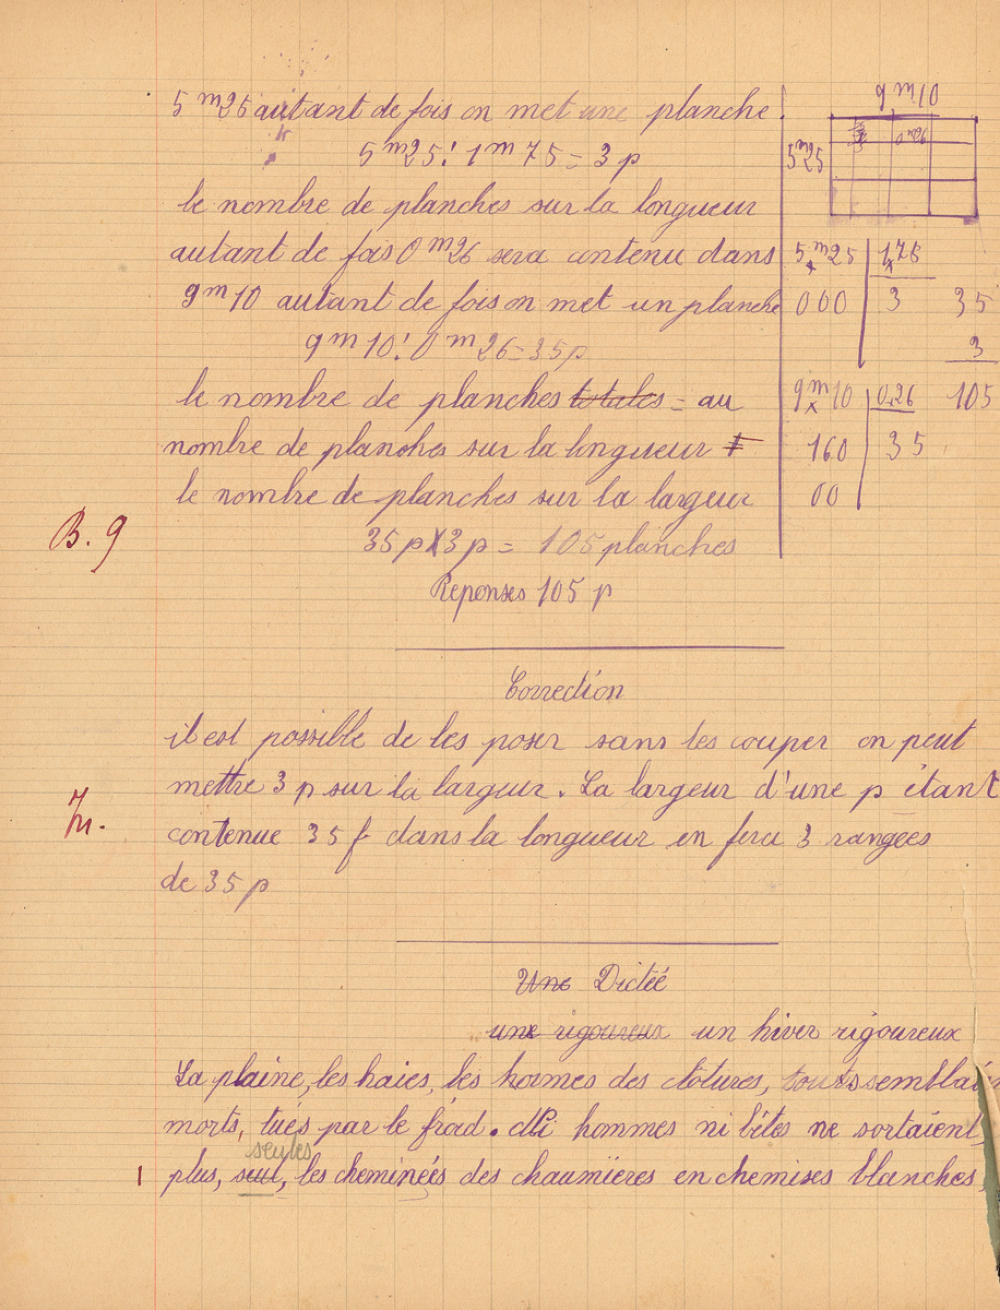 5 m25 autant de fois on met une planche.
5 m25 : 1 m 75 = 3 p
le nombre de planches sur la longueur
autant de fois 0 m26 sera contenu dans
9 m 10 autant de fois on met un planche
9 m 10 : 0 m 26 = 35 p
le nombre de planches totales = au
nombre de planches sur la longueur
le nombre de planches sur la largeur
35 p X 3 p = 105 planches
Reponses 105 p
9 m 10
5 m25
0 m26
5, m25 1,75
000 3 35
3
9 m 10 0,26 105
160 35
00
B. 9
Correction
il est possible de les poser sans les couper on peut
mettre 3 p sur la largeur. La largeur d'une p étant
contenue 35 f dans la longueur en fera 3 rangées
de 35 p
Une Dictée
une rigoureux un hiver rigoureux
La plaine, les haies, les hormes des clôtures, tout semblai
morts, tués par le froid. Ni hommes ni bêtes ne sortaient
seules
1 plus, seul, les cheminées des chaumières en chemises blanches,